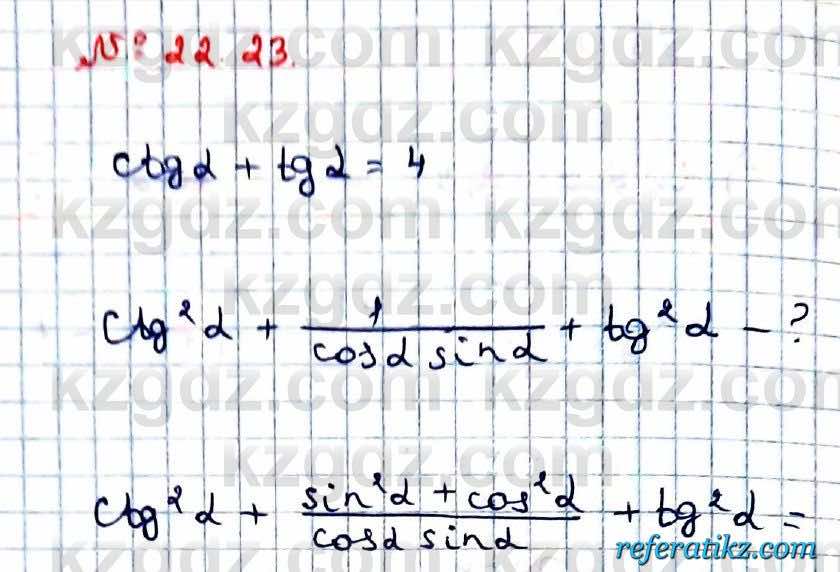 № 22.23.
ctg α + tg α = 4
ctg²α + 1/(cos α sin α) + tg²α - ?
ctg²α + (sin²α + cos²α)/(cos α sin α) + tg²α =
kzgdz.com kzgdz.com
kzgdz.com
kzgdz.com kzgdz.com
kzgdz.com
kzgdz.com kzgdz.com
kzgdz.com
referatikz.com